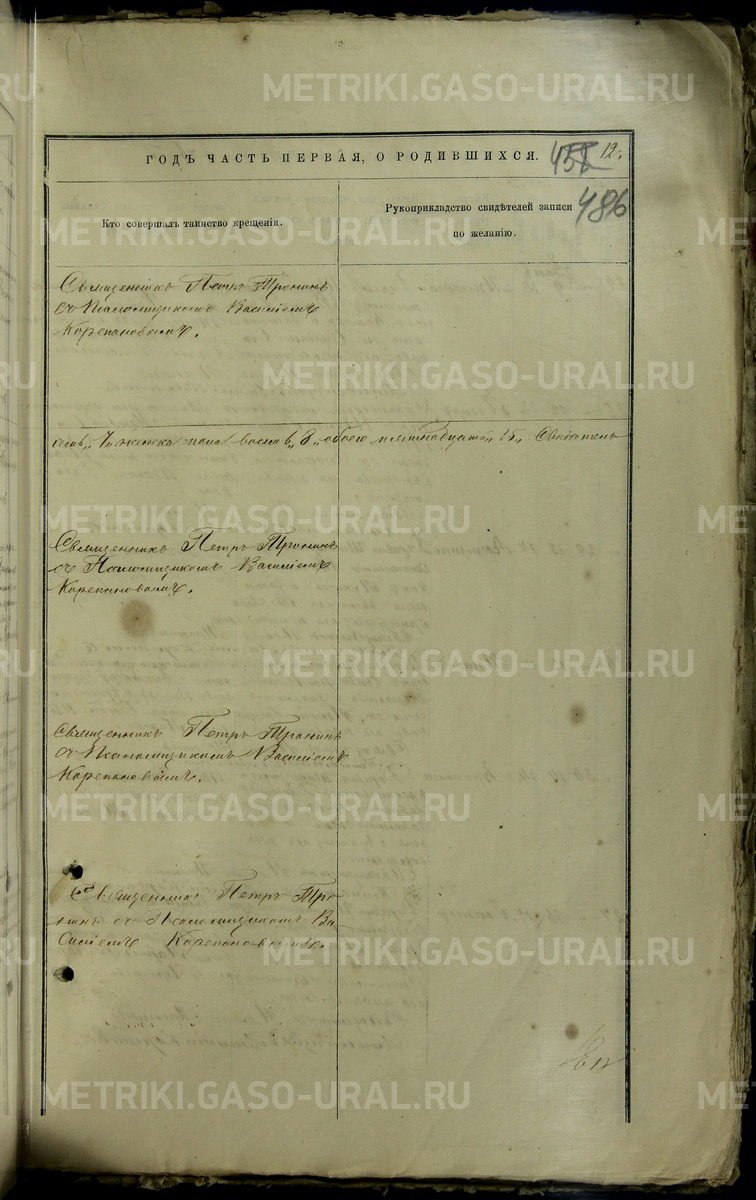 METRIKI.GASO-URAL.RU
ГОДЪ ЧАСТЬ ПЕРВАЯ, О РОДИВШИХСЯ.
458 12.
486
Кто совершалъ таинство крещенія.
Рукоприкладство свидѣтелей записи
по желанію.
Священникъ Петръ Тронинъ
съ Псаломщикомъ Василіемъ
Корепановымъ.
семь „7„ женска пола восемь „8„ обоего пятнадцать „15„
Священникъ Петръ Тронинъ
съ Псаломщикомъ Василіемъ
Корепановымъ.
Священникъ Петръ Тронинъ
съ Псаломщикомъ Василіемъ
Корепановымъ.
Священникъ Петръ Тро-
нинъ съ Псаломщикомъ Ва-
силіемъ Корепановымъ.